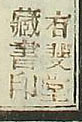 有斐堂
藏書印